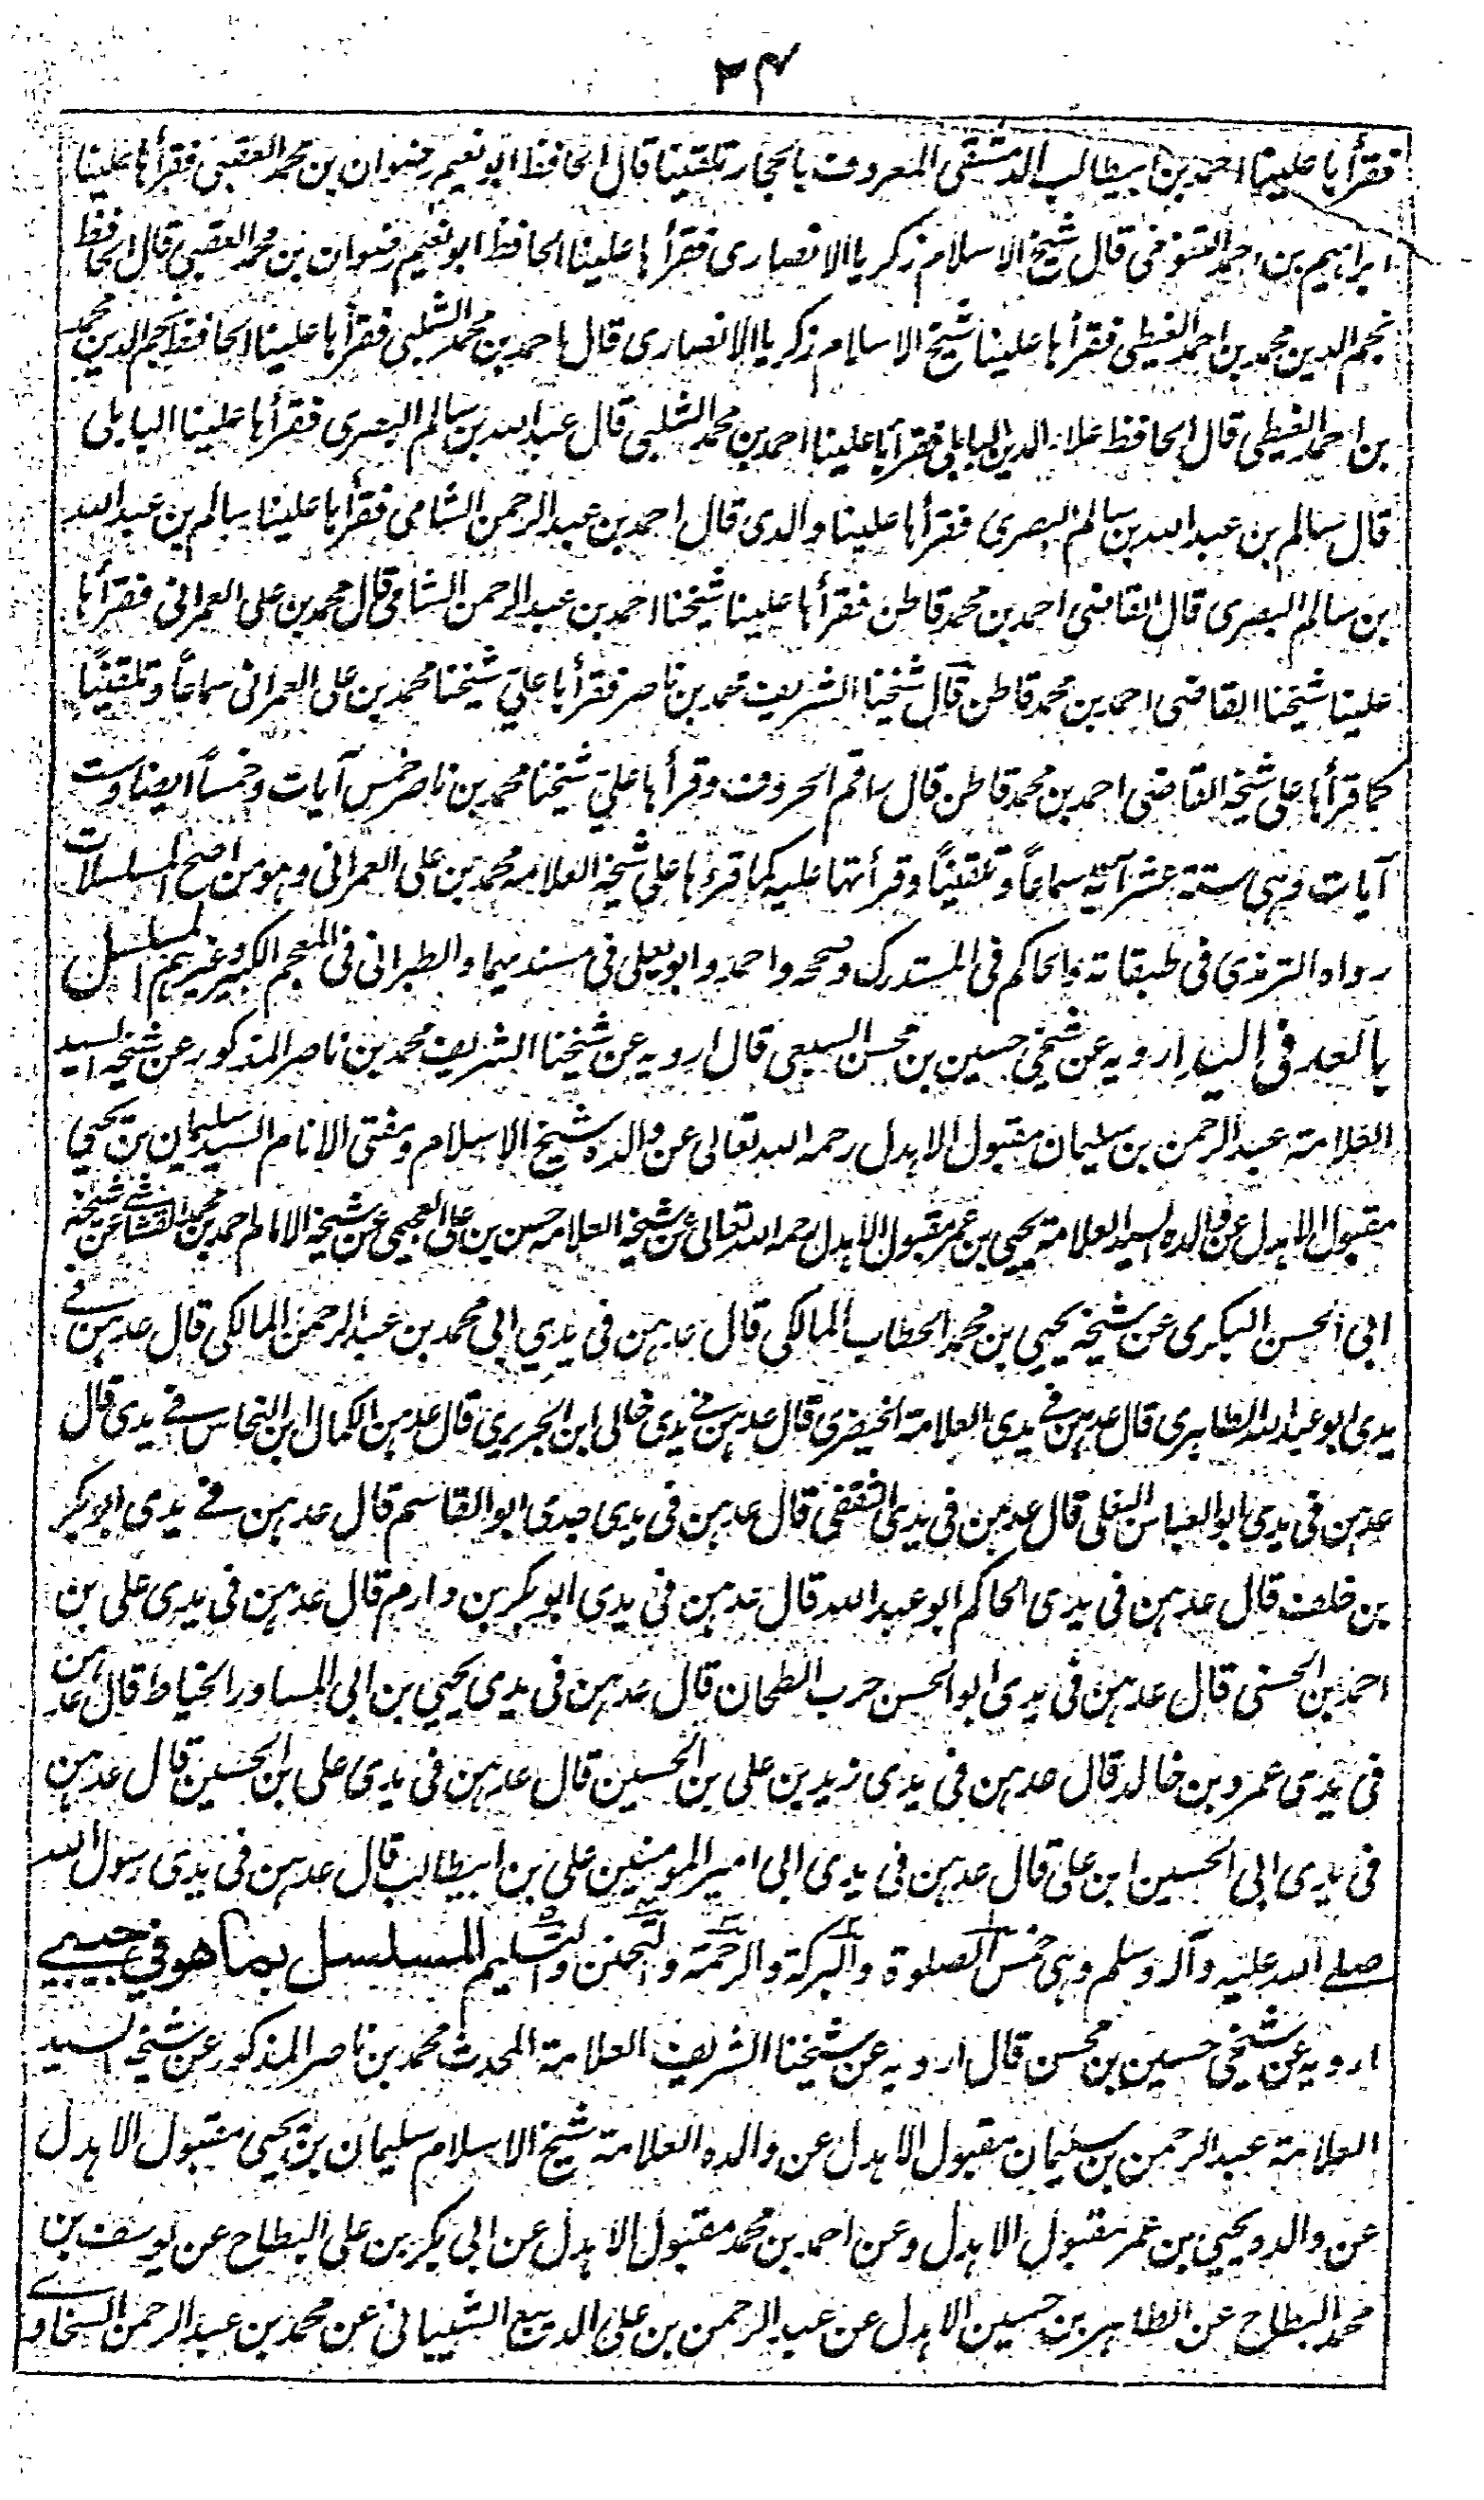 ۲۴
فقرأها علينا احمد بن ابيطالب الدمشقى المعروف بالحجار تلقينا قال الحافظ ابو نعيم رضوان بن محمد العقبى فقرأها علينا
ابراهيم بن احمد التنوخى قال شيخ الاسلام زكريا الانصارى فقرأها علينا الحافظ ابو نعيم رضوان بن محمد العقبى قال الحافظ
نجم الدين محمد بن احمد الغيطى فقرأها علينا شيخ الاسلام زكريا الانصارى قال احمد بن محمد الشلبى فقرأها علينا الحافظ نجم الدين محمد
بن احمد الغيطى قال الحافظ علاء الدين البابلى فقرأها علينا احمد بن محمد الشلبى قال عبد الله بن سالم البصرى فقرأها علينا البابلى
قال سالم بن عبد الله بن سالم البصرى فقرأها علينا والدى قال احمد بن عبد الرحمن الشامى فقرأها علينا سالم بن عبد الله
بن سالم البصرى قال القاضى احمد بن محمد قاطن فقرأها علينا شيخنا احمد بن عبد الرحمن الشامى قال محمد بن على العمرانى فقرأها
علينا شيخنا القاضى احمد بن محمد قاطن قال شيخنا الشريف محمد بن ناصر فقرأها علىّ شيخنا محمد بن على العمرانى سماعاً وتلقيناً
كما قرأها على شيخه القاضى احمد بن محمد قاطن قال راقم الحروف وقرأها علىّ شيخنا محمد بن ناصر خمس آيات وخمساً ايضا وست
آيات وهى ستة عشر آية سماعاً وتلقيناً وقرأتها عليه كما قرءها على شيخه العلامه محمد بن على العمرانى وهو من اصح المسلسلات
رواه الترمذى فى طبقاته والحاكم فى المستدرك وصححه واحمد وابو يعلى فى مسنديهما والطبرانى فى المعجم الكبير وغيرهم المسلسل
بالعد فى اليد ارويه عن شيخى حسين بن محسن السبعى قال ارويه عن شيخنا الشريف محمد بن ناصر المذكور عن شيخه السيد
العلامة عبد الرحمن بن سليمان مقبول الاهدل رحمه الله تعالى عن والده شيخ الاسلام ومفتى الانام السيد سليمان بن يحيى
مقبول الاهدل عن والده السيد العلامة يحيى بن عمر مقبول الاهدل رحمه الله تعالى عن شيخه العلامه حسن بن على العجيمى عن شيخه الامام احمد بن محمد القشاشى عن شيخه
ابى الحسن البكرى عن شيخه يحيى بن محمد الحطاب المالكى قال عدهن فى يدي ابى محمد بن عبد الرحمن المالكى قال عدهن فے
يدى ابو عبد الله الظاهرى قال عدهن فے يدى العلامة الخيضرى قال عدهن فے يدى خالى ابن الجريرى قال عدهن الكمال ابن النحاس فے يدى قال
عدهن فى يدى ابو العباس البغلى قال عدهن فى يدى الثقفى قال عدهن فى يدى جدى ابو القاسم قال عدهن فے يدى ابو بكر
بن خلف قال عدهن فى يدى الحاكم ابو عبد الله قال عدهن فى يدى ابو بكر بن دارم قال عدهن فى يدى على بن
احمد بن الحسنى قال عدهن فى يدى ابو الحسن حرب الطحان قال عدهن فى يدى يحيى بن ابى المساور الخياط قال عدهن
فى يدى عمرو بن خالد قال عدهن فى يدى زيد بن على بن الحسين قال عدهن فى يدى على بن الحسين قال عدهن
فى يدى ابى الحسين ابن على قال عدهن فى يدى ابى امير المومنين على بن ابيطالب قال عدهن فى يدى رسول الله
صلے الله عليه وآله وسلم وهى خمس الصلوة والبركة والرحمة والتحنن والتسليم المسلسل بما هو في جيبے
ارويه عن شيخى حسين بن محسن قال ارويه عن شيخنا الشريف العلامة المحدث محمد بن ناصر المذكور عن شيخه السيد
العلامة عبد الرحمن بن سليمان مقبول الاهدل عن والده العلامة شيخ الاسلام سليمان بن يحيى مقبول الاهدل
عن والده يحيى بن عمر مقبول الاهدل وعن احمد بن محمد مقبول الاهدل عن ابى بكر بن على البطاح عن يوسف بن
محمد البطاح عن الطاهر بن حسين الاهدل عن عبد الرحمن بن على الديبع الشيبانى عن محمد بن عبد الرحمن السخاوے